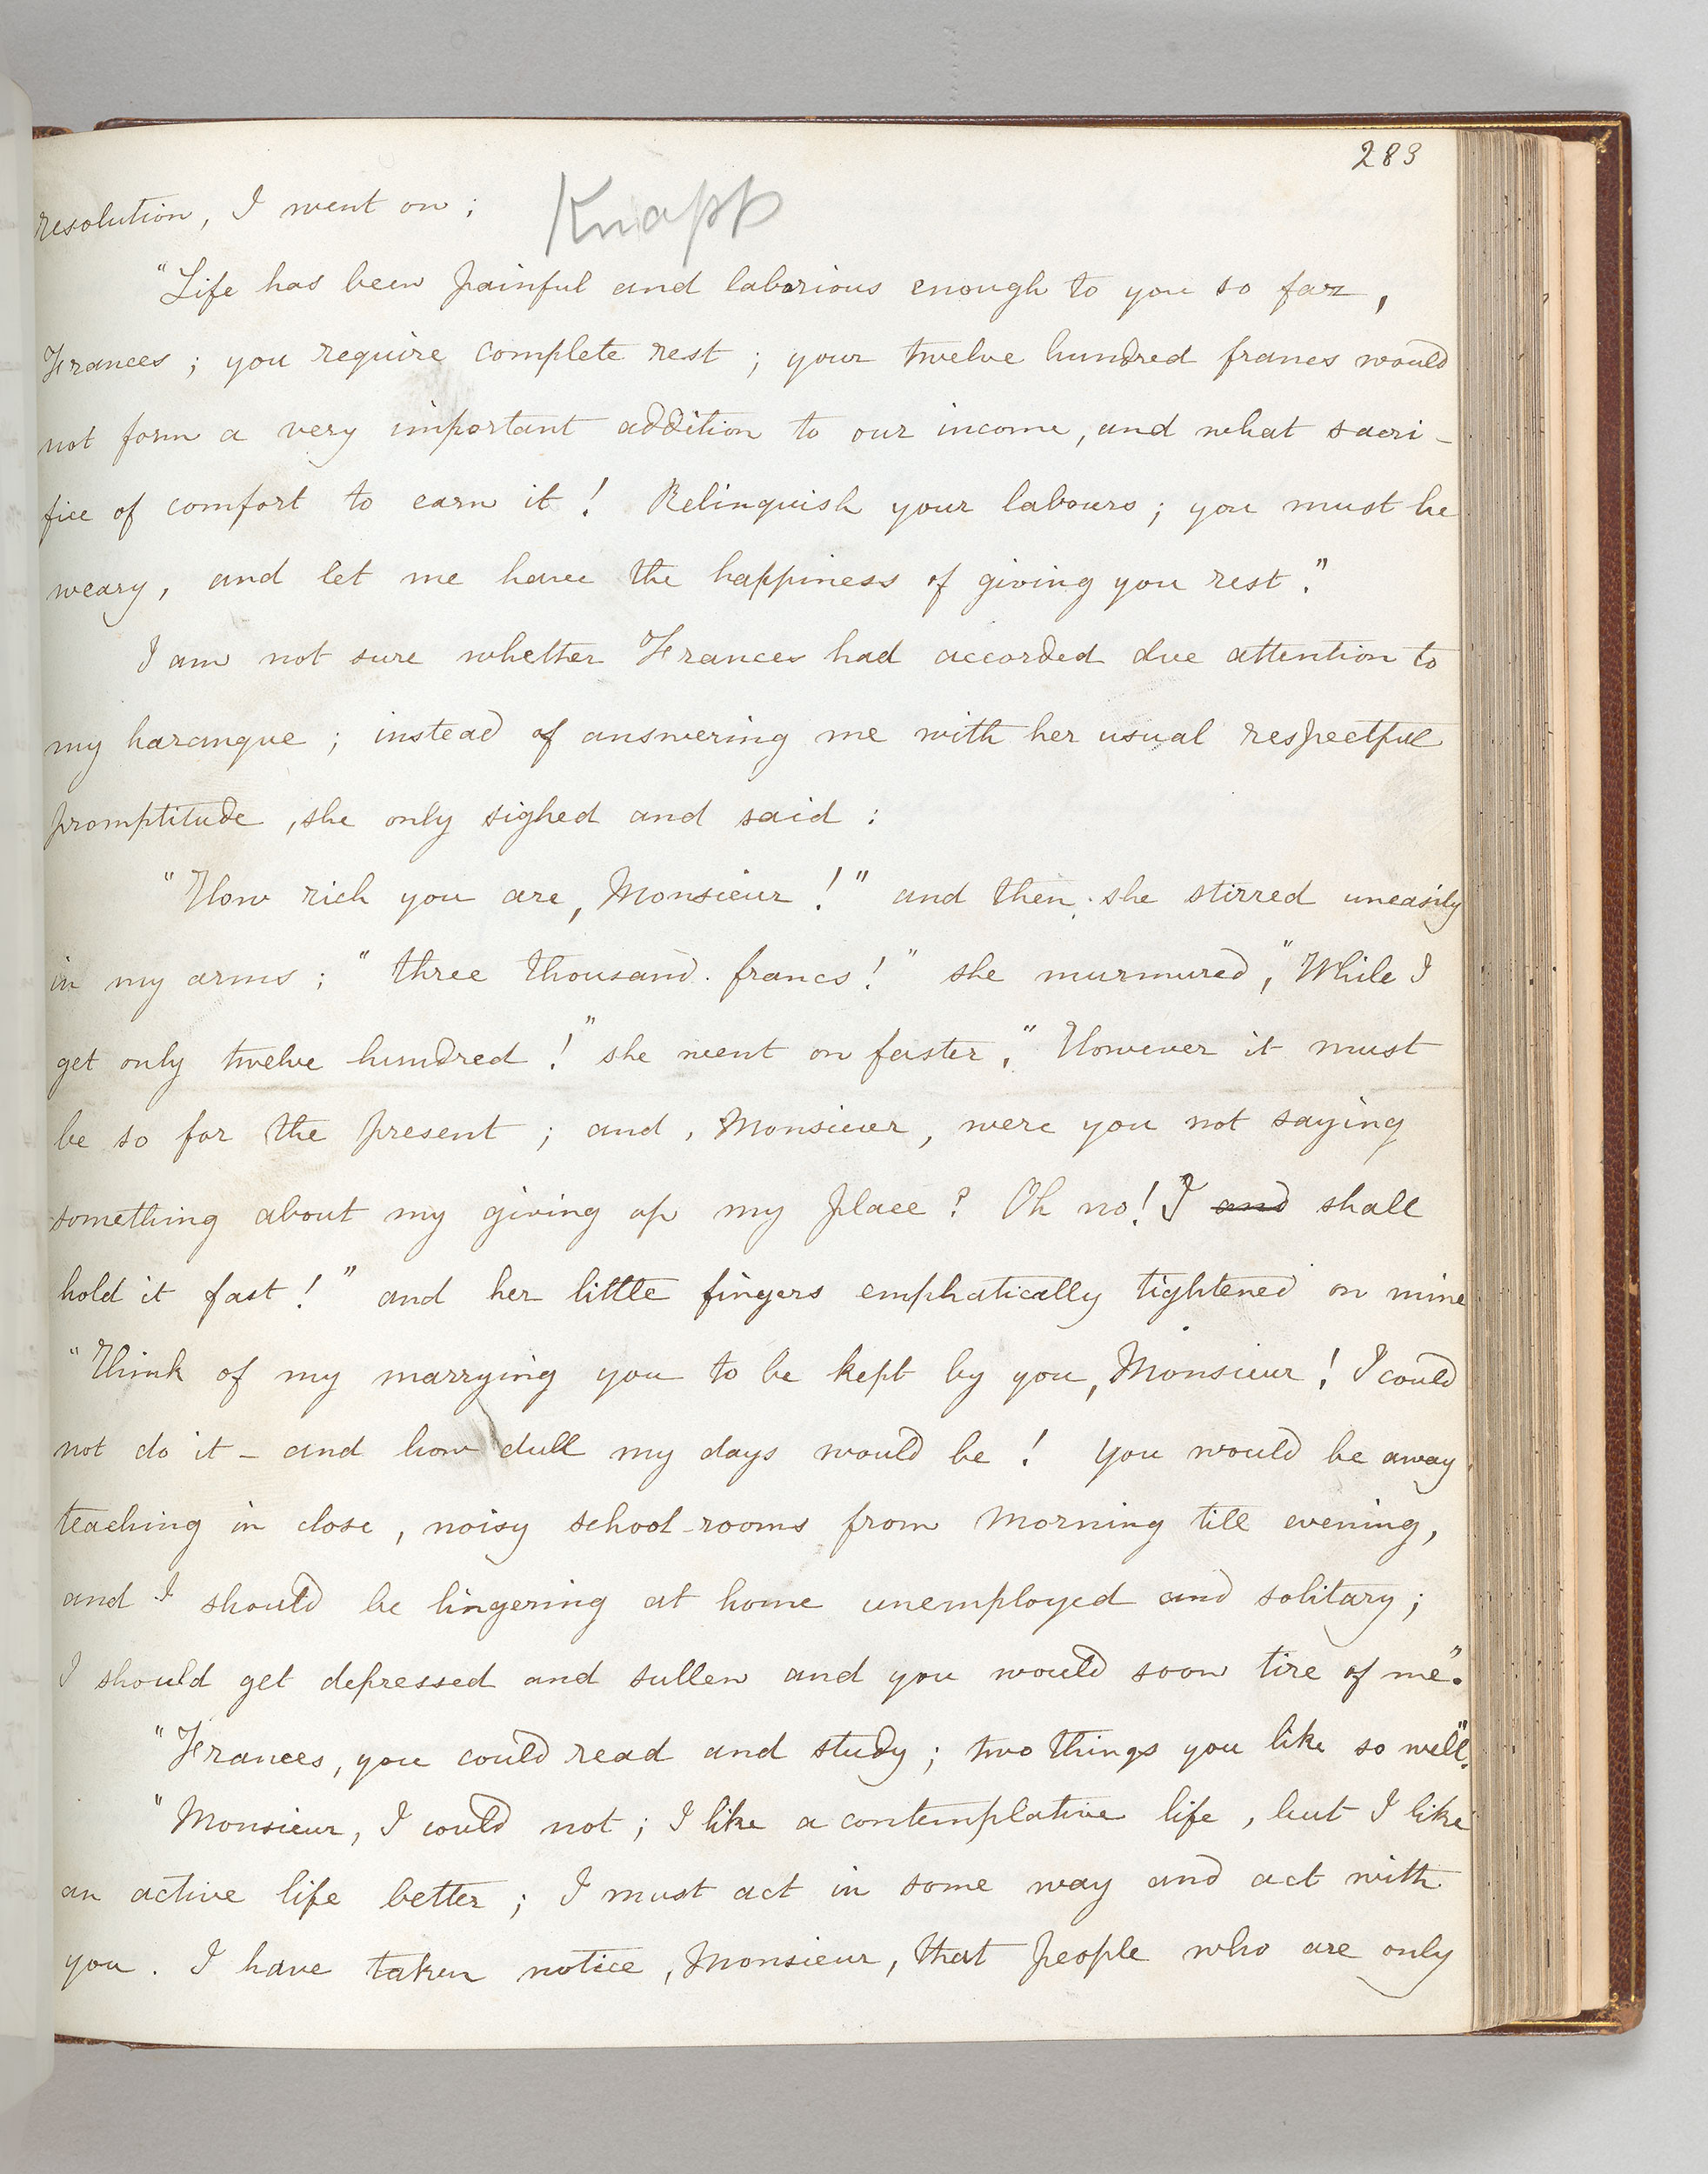 283
resolution, I went on;
Knapp
"Life has been painful and laborious enough to you so far,
Frances; you require complete rest; your twelve hundred francs would
not form a very important addition to our income, and what sacri-
fice of comfort to earn it! Relinquish your labours; you must be
weary, and let me have the happiness of giving you rest."
I am not sure whether Frances had accorded due attention to
my harangue; instead of answering me with her usual respectful
promptitude, she only sighed and said:
"How rich you are, Monsieur!" and then she stirred uneasily
in my arms; "three thousand francs!" she murmured, "While I
get only twelve hundred!" she went on faster, "However it must
be so for the present; and, Monsieur, were you not saying
something about my giving up my place? Oh no! I and shall
hold it fast!" and her little fingers emphatically tightened on mine
"Think of my marrying you to be kept by you, Monsieur! I could
not do it - and how dull my days would be! You would be away
teaching in close, noisy school-rooms from morning till evening,
and I should be lingering at home unemployed and solitary;
I should get depressed and sullen and you would soon tire of me".
"Frances, you could read and study; two things you like so well".
"Monsieur, I could not; I like a contemplative life, but I like
an active life better; I must act in some way and act with
you. I have taken notice, Monsieur, that people who are only